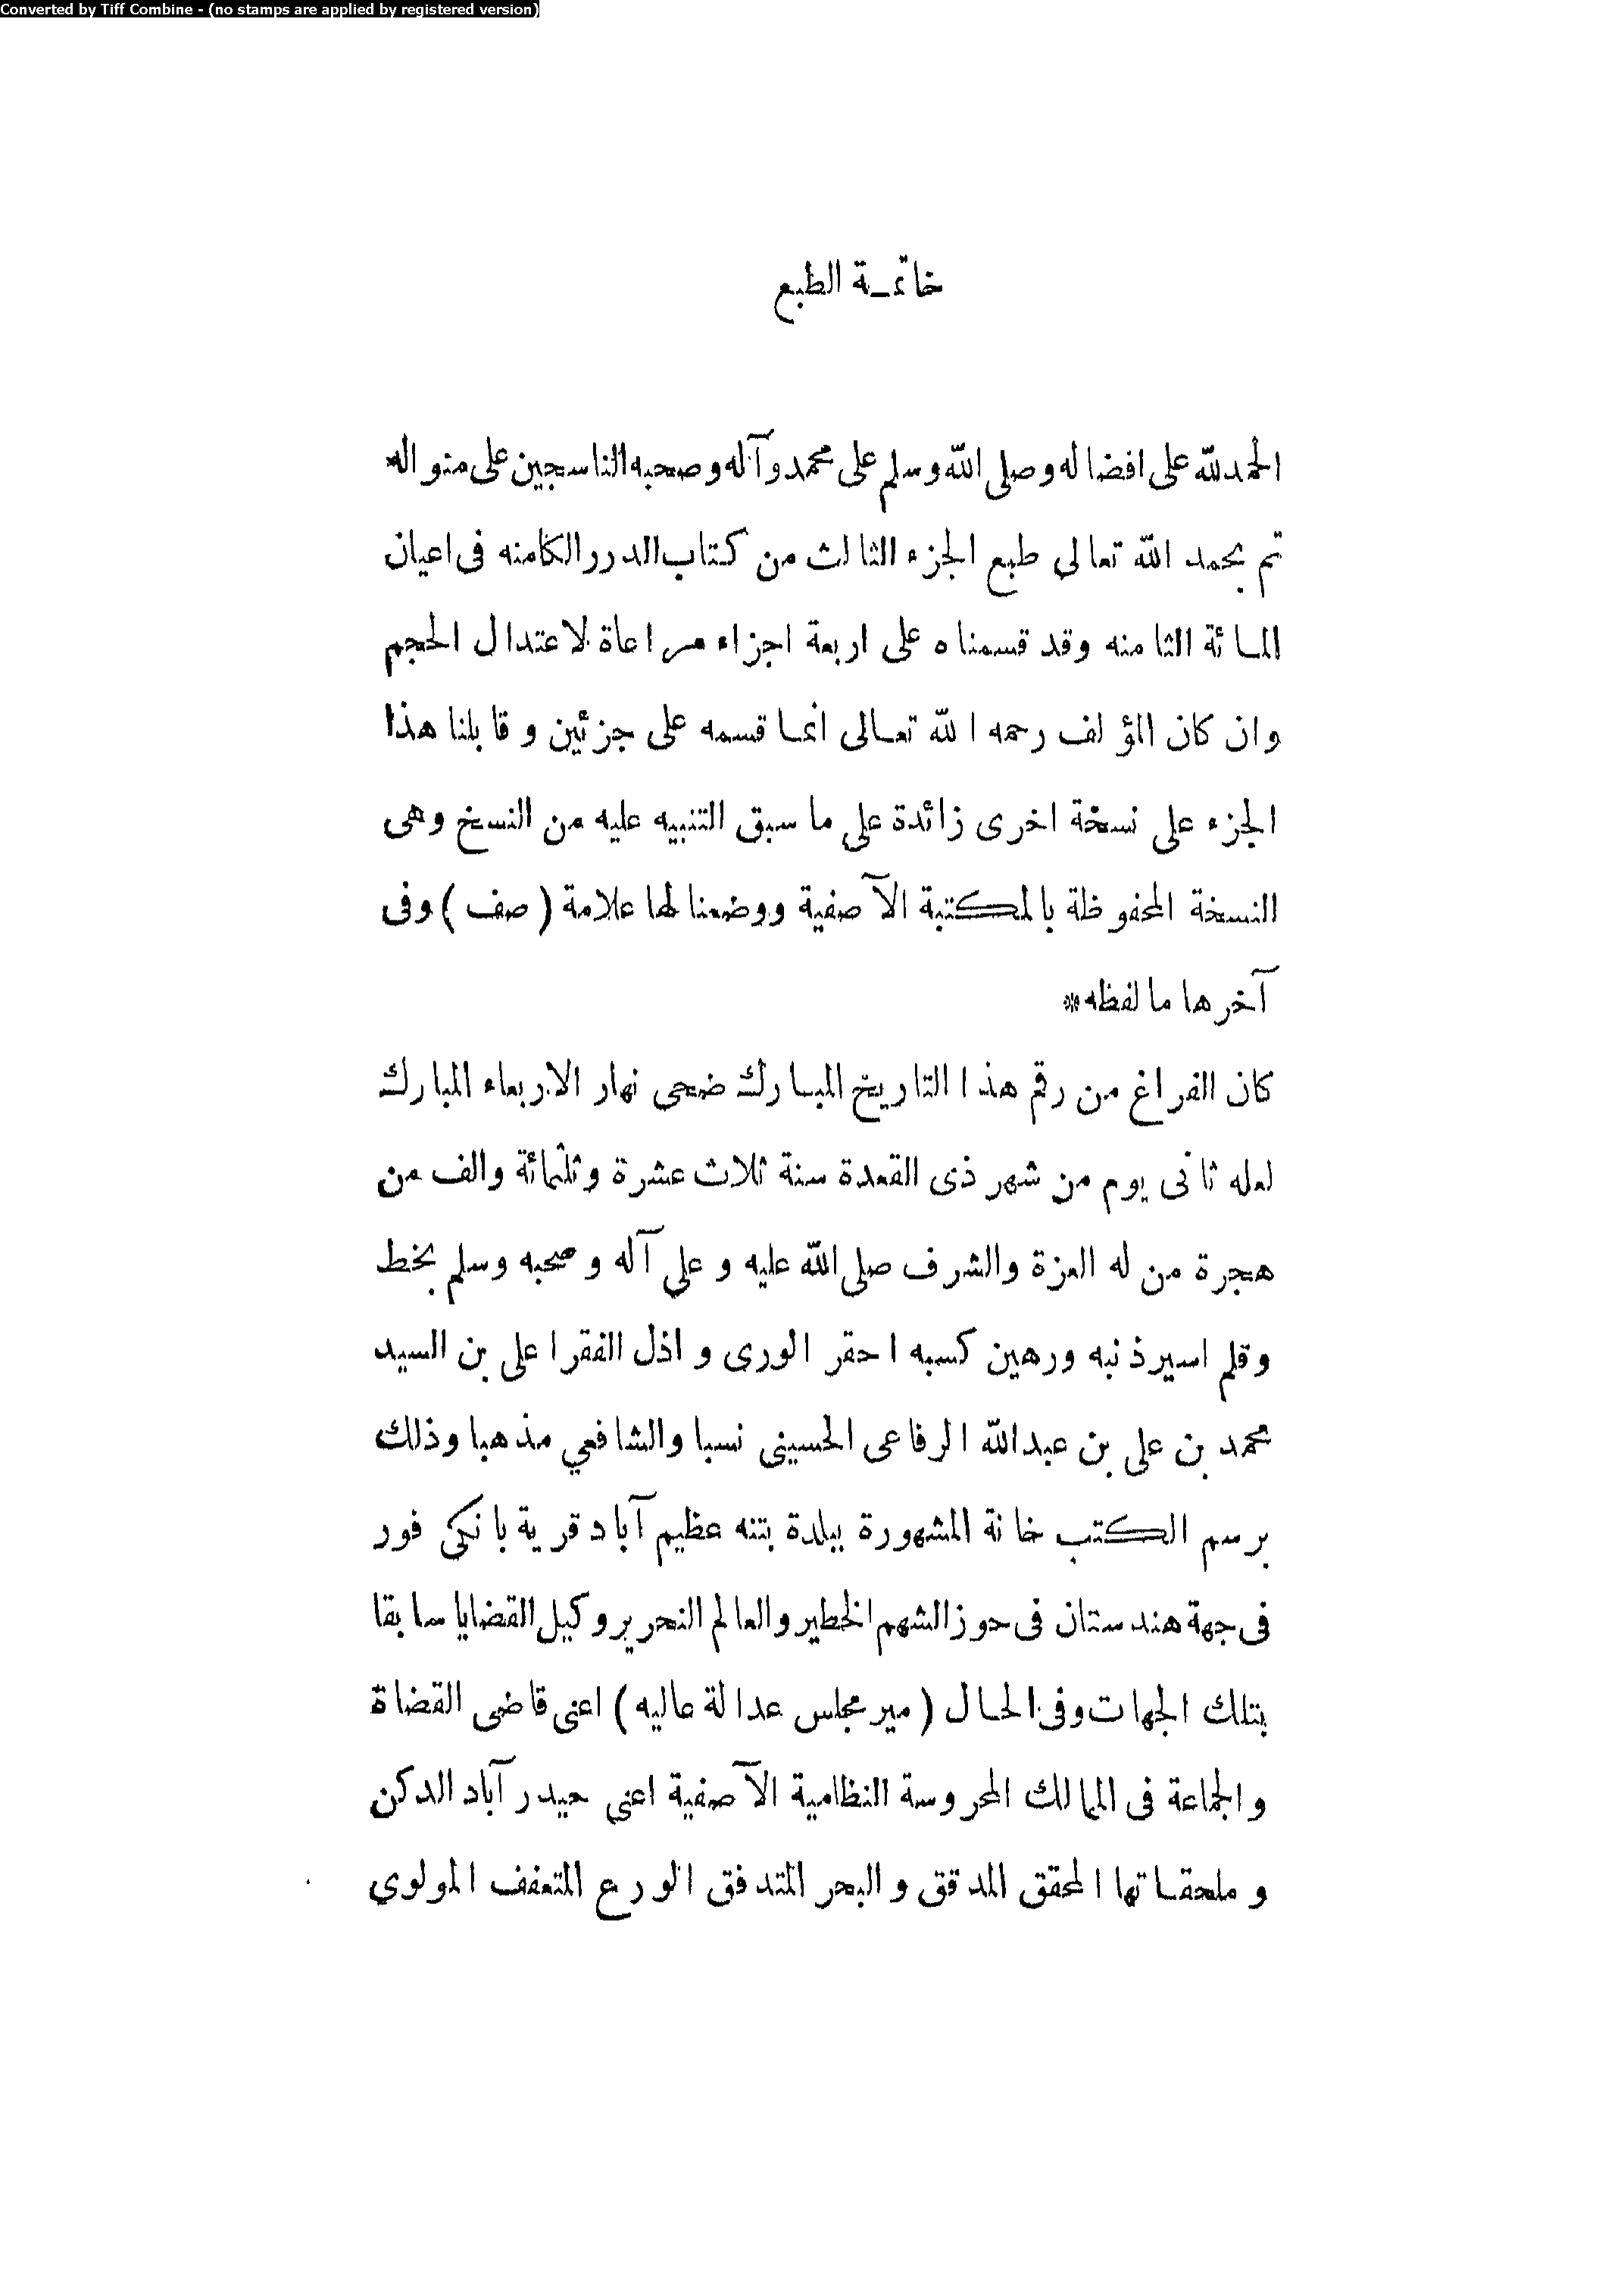 Converted by Tiff Combine - (no stamps are applied by registered version)
خاتمـة الطبع
الحمدلله على افضاله وصلى الله وسلم على محمد وآله وصحبه الناسجين على منواله
تم بحمد الله تعالى طبع الجزء الثالث من كتاب الدرر الكامنه فى اعيان
المائة الثامنه وقد قسمناه على اربعة اجزاء مراعاة لاعتدال الحجم
وان كان المؤلف رحمه الله تعالى انما قسمه على جزئين وقابلنا هذا
الجزء على نسخة اخرى زائدة على ما سبق التنبيه عليه من النسخ وهى
النسخة المحفوظة بالمكتبة الآصفية ووضعنا لها علامة ( صف ) وفى
آخرها ما لفظه*
كان الفراغ من رقم هذا التاريخ المبارك ضحى نهار الاربعاء المبارك
لعله ثانى يوم من شهر ذى القعدة سنة ثلاث عشرة وثلثمائة والف من
هجرة من له العزة والشرف صلى الله عليه وعلى آله وصحبه وسلم بخط
وقلم اسير ذنبه ورهين كسبه احقر الورى واذل الفقرا على بن السيد
محمد بن على بن عبدالله الرفاعى الحسينى نسبا والشافعي مذهبا وذلك
برسم الكتب خانة المشهورة ببلدة بتنه عظيم آباد قرية بانكى فور
فى جهة هندستان فى حوز الشهم الخطير والعالم النحرير وكيل القضايا سابقا
بتلك الجهات وفى الحال ( مير مجلس عدالة عاليه ) اعنى قاضى القضاة
والجماعة فى الممالك المحروسة النظامية الآصفية اعنى حيدر آباد الدكن
وملحقاتها المحقق المدقق والبحر المتدفق الورع المتعفف المولوي